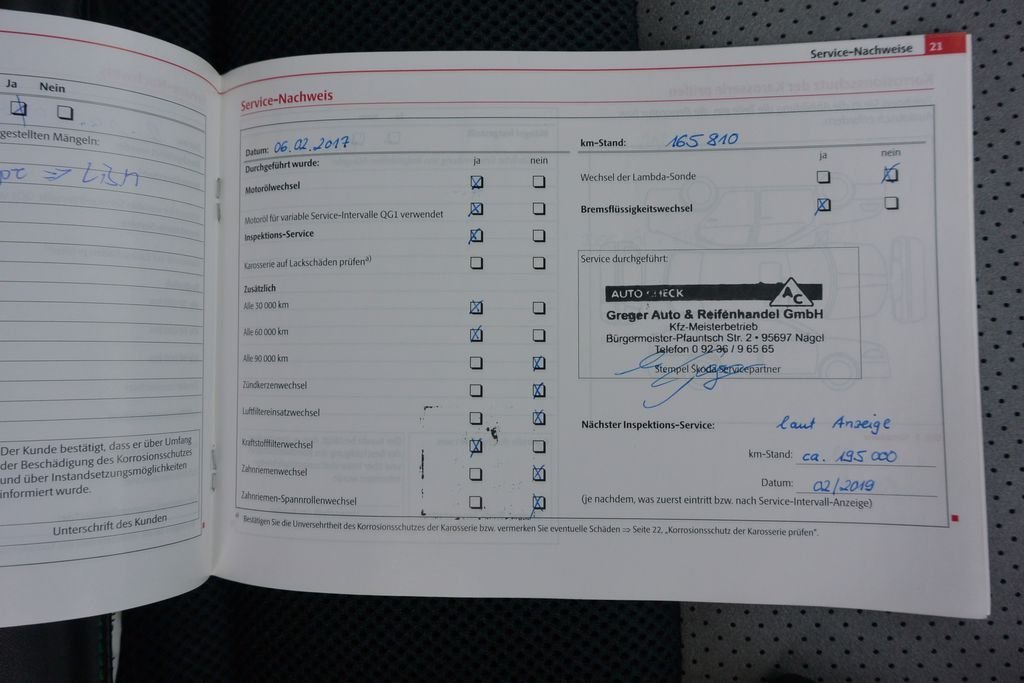 Service-Nachweise 23
Ja Nein
gestellten Mängeln:
Der Kunde bestätigt, dass er über Umfang
der Beschädigung des Korrosionsschutzes
und über Instandsetzungsmöglichkeiten
informiert wurde.
Unterschrift des Kunden
Service-Nachweis
Datum: 06.02.2017
Durchgeführt wurde: ja nein
Motorölwechsel
Motoröl für variable Service-Intervalle QG1 verwendet
Inspektions-Service
Karosserie auf Lackschäden prüfen a)
Zusätzlich
Alle 30 000 km
Alle 60 000 km
Alle 90 000 km
Zündkerzenwechsel
Luftfiltereinsatzwechsel
Kraftstofffilterwechsel
Zahnriemenwechsel
Zahnriemen-Spannrollenwechsel
km-Stand: 165 810
ja nein
Wechsel der Lambda-Sonde
Bremsflüssigkeitswechsel
Service durchgeführt:
AUTO CHECK AC
Greger Auto & Reifenhandel GmbH
Kfz-Meisterbetrieb
Bürgermeister-Pfauntsch Str. 2 • 95697 Nagel
Telefon 0 92 36 / 9 65 65
Stempel Škoda Servicepartner
Nächster Inspektions-Service: laut Anzeige
km-Stand: ca. 195 000
Datum: 02/2019
(je nachdem, was zuerst eintritt bzw. nach Service-Intervall-Anzeige)
a) Bestätigen Sie die Unversehrtheit des Korrosionsschutzes der Karosserie bzw. vermerken Sie eventuelle Schäden ⇒ Seite 22, „Korrosionsschutz der Karosserie prüfen“.